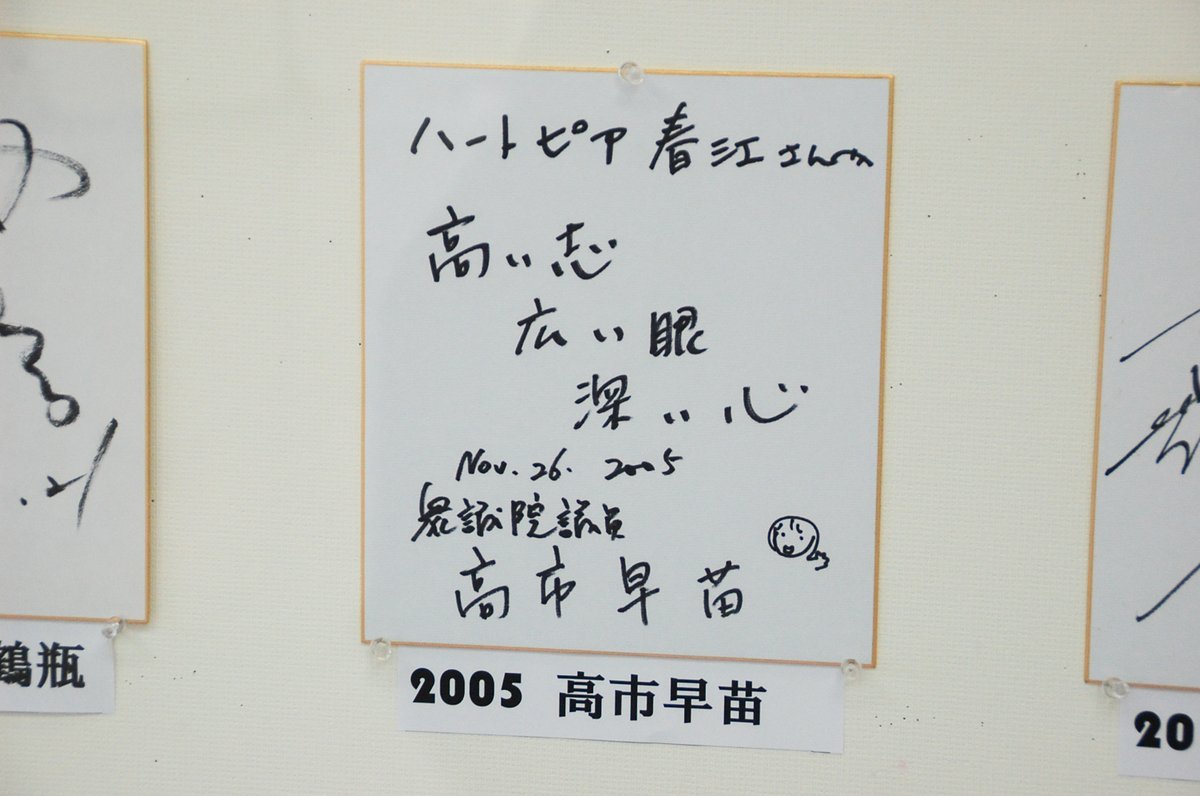 ハートピア春江さんへ
高い志
広い眼
深い心
Nov. 26. 2005
衆議院議員
高市早苗
2005 高市早苗
鶴瓶
20